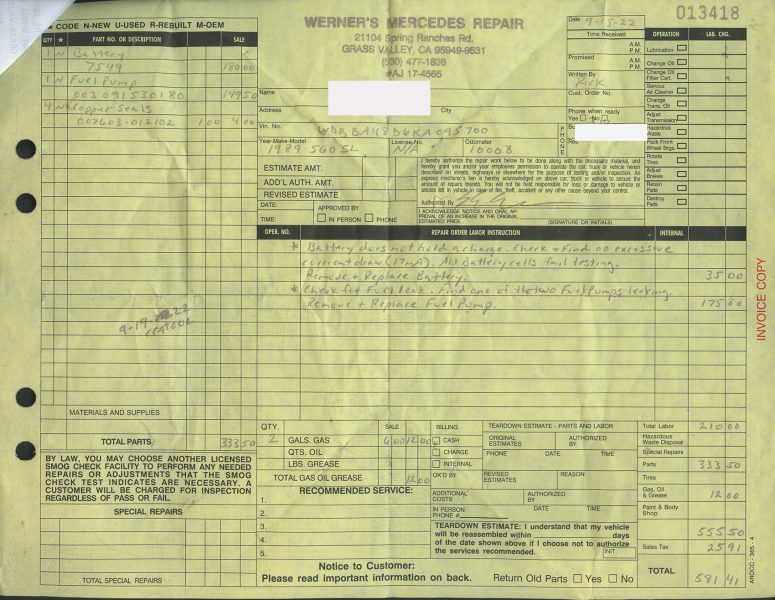 ★ CODE N-NEW U-USED R-REBUILT M-OEM
QTY. ★ PART NO. OR DESCRIPTION SALE
1 N Battery
7549 180 00
1 N Fuel Pump
003 091 530180 149 50
4 N Copper Seals
007603-012102 1 00 4 00
MATERIALS AND SUPPLIES
TOTAL PARTS 333 50
BY LAW, YOU MAY CHOOSE ANOTHER LICENSED
SMOG CHECK FACILITY TO PERFORM ANY NEEDED
REPAIRS OR ADJUSTMENTS THAT THE SMOG
CHECK TEST INDICATES ARE NECESSARY. A
CUSTOMER WILL BE CHARGED FOR INSPECTION
REGARDLESS OF PASS OR FAIL.
SPECIAL REPAIRS
TOTAL SPECIAL REPAIRS
9-19-22
WERNER'S MERCEDES REPAIR
21104 Spring Ranches Rd.
GRASS VALLEY, CA 95949-9531
(530) 477-1838
#AJ 17-4565
Name
Address City
Vin. No. WDBBA48D6KA095700
Year-Make-Model License No. Odometer
1989 560SL N/A 10008
Date 9-15-22
Time Received
A.M.
P.M.
Promised A.M.
P.M.
Written By
Rick
Cust. Order No.
Phone when ready
Yes No
PHONE
Bu
Res
013418
OPERATION LAB. CHG.
Lubrication
Change Oil
Change Oil
Filter Cart.
Service
Air Cleaner
Change
Trans. Oil
Adjust
Transmission
Hazardous
Waste
Pack Front
Wheel Brgs.
Rotate
Time
Adjust
Brakes
Retain
Parts
Destroy
Parts
ESTIMATE AMT.
ADD'L AUTH. AMT.
REVISED ESTIMATE
DATE: APPROVED BY
TIME: IN PERSON PHONE
I hereby authorize the repair work below to be done along with the necessary material, and
hereby grant you and/or your employees permission to operate the car, truck or vehicle herein
described on streets, highways or elsewhere for the purpose of testing and/or inspection. An
express mechanic's lien is hereby acknowledged on above car, truck or vehicle to secure the
amount of repairs thereto. You will not be held responsible for loss or damage to vehicle or
articles left in vehicle in case of fire, theft, accident, or any other cause beyond your control.
Authorized By
I ACKNOWLEDGE NOTICE AND ORAL AP-
PROVAL OF AN INCREASE IN THE ORIGINAL
ESTIMATED PRICE. (SIGNATURE OR INITIALS)
OPER. NO. REPAIR ORDER LABOR INSTRUCTION INTERNAL
* Battery does not hold a charge. Check + Find no excessive
current draw (17mA). All Battery cells fail testing.
Remove + Replace Battery. 35 00
* Check for Fuel leak. Find one of the two Fuel Pumps leaking.
Remove + Replace Fuel Pump. 175 00
INVOICE COPY
QTY. SALE
2 GALS. GAS 6 00 12 00
QTS. OIL
LBS. GREASE
TOTAL GAS OIL GREASE 12 00
RECOMMENDED SERVICE:
1.
2.
3.
4.
5.
BILLING
CASH
CHARGE
INTERNAL
OK'D BY
ADDITIONAL
COSTS
IN PERSON
PHONE #
TEARDOWN ESTIMATE - PARTS AND LABOR
ORIGINAL
ESTIMATES AUTHORIZED
BY
PHONE DATE TIME
REVISED
ESTIMATES REASON
AUTHORIZED
BY
DATE TIME
TEARDOWN ESTIMATE: I understand that my vehicle
will be reassembled within days
of the date shown above if I choose not to authorize
the services recommended. INIT.
Notice to Customer:
Please read important information on back.
Return Old Parts Yes No
Total Labor 210 00
Hazardous
Waste Disposal
Special Repairs
Parts 333 50
Tires
Gas, Oil
& Grease 12 00
Paint & Body
Shop
555 50
Sales Tax 25 91
TOTAL 581 41
AROCC - 365 - 4